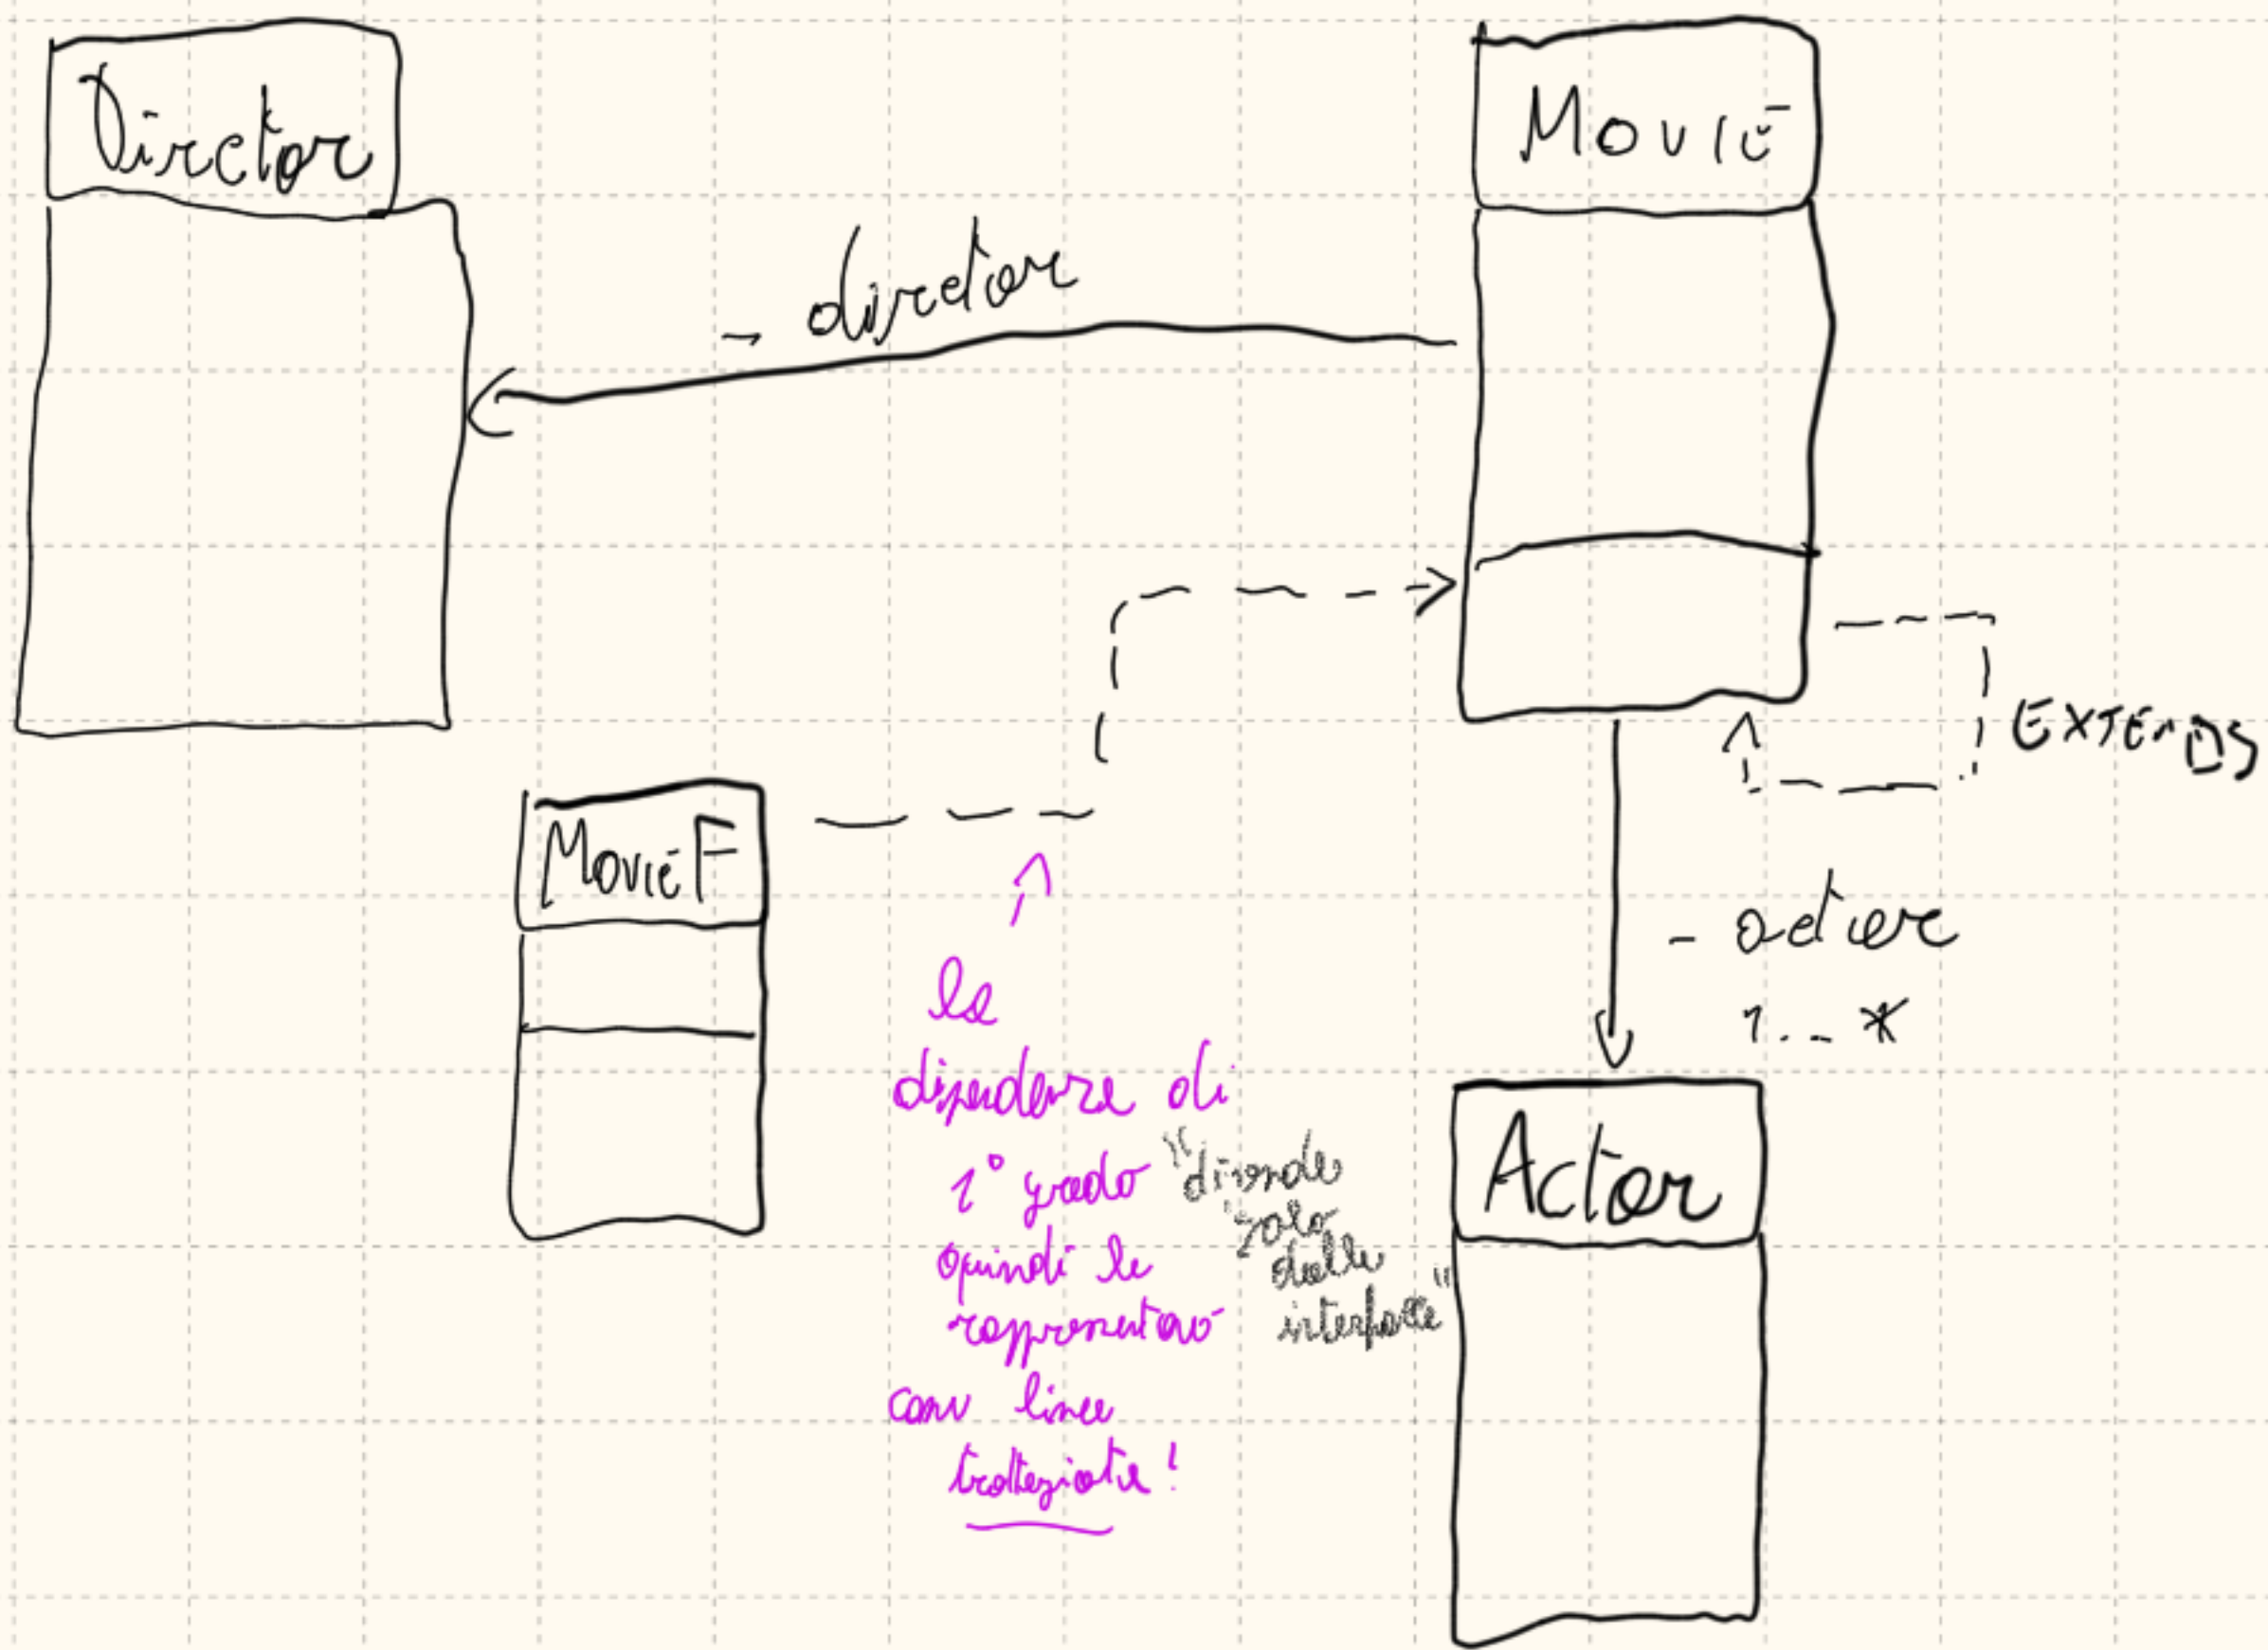 Director
Movie
- director
EXTENDS
MovieF
- actor
1..*
la
dipendenza di
1° grado
quindi le
rappresentao
con linee
tratteggiate!
"dipende
solo
dalle
interfacce"
Actor